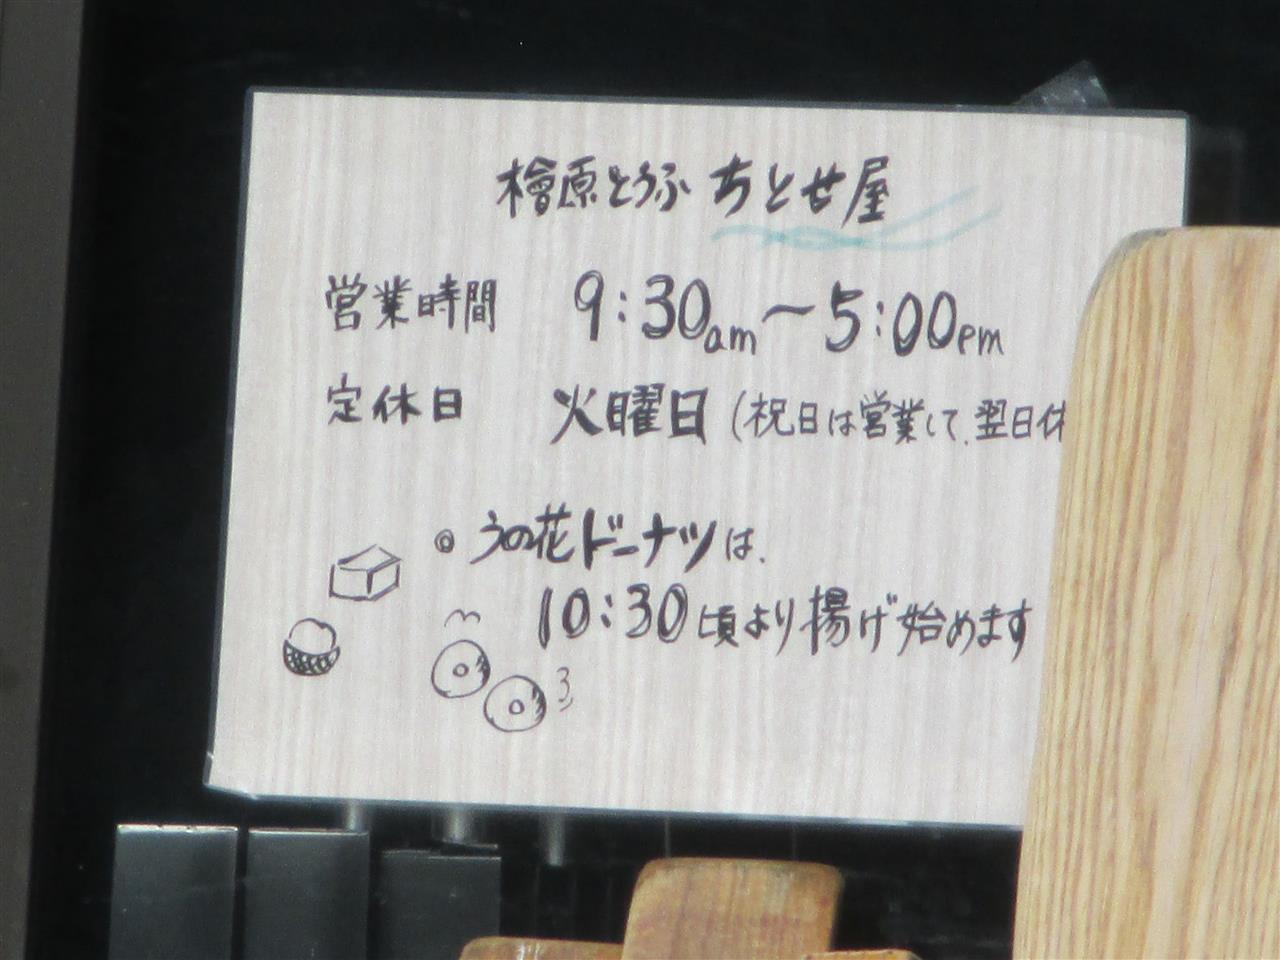 檜原とうふ ちとせ屋
営業時間 9:30am〜5:00pm
定休日 火曜日(祝日は営業して、翌日休
◎うの花ドーナツは、
10:30頃より揚げ始めます